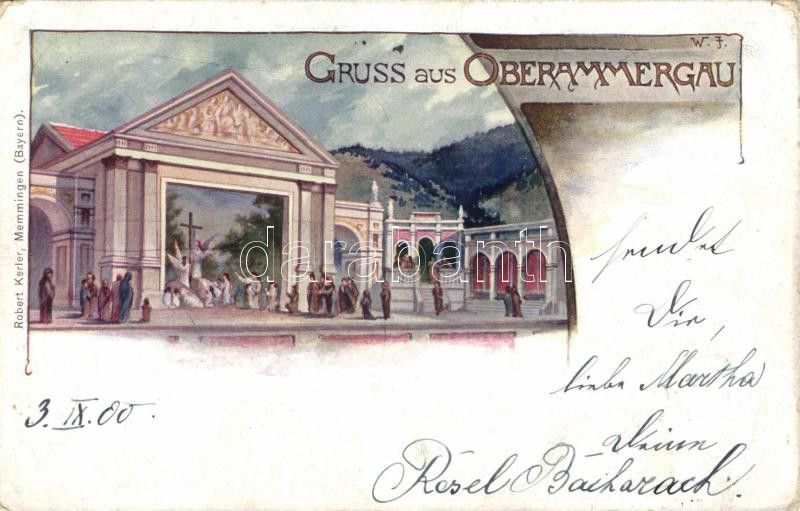 W. F.
GRUSS AUS OBERAMMERGAU
Robert Kerler, Memmingen (Bayern).
darabanth
sendet
Dir,
liebe Martha
Deine
Rosel Bacharach.
3. IX. 00.